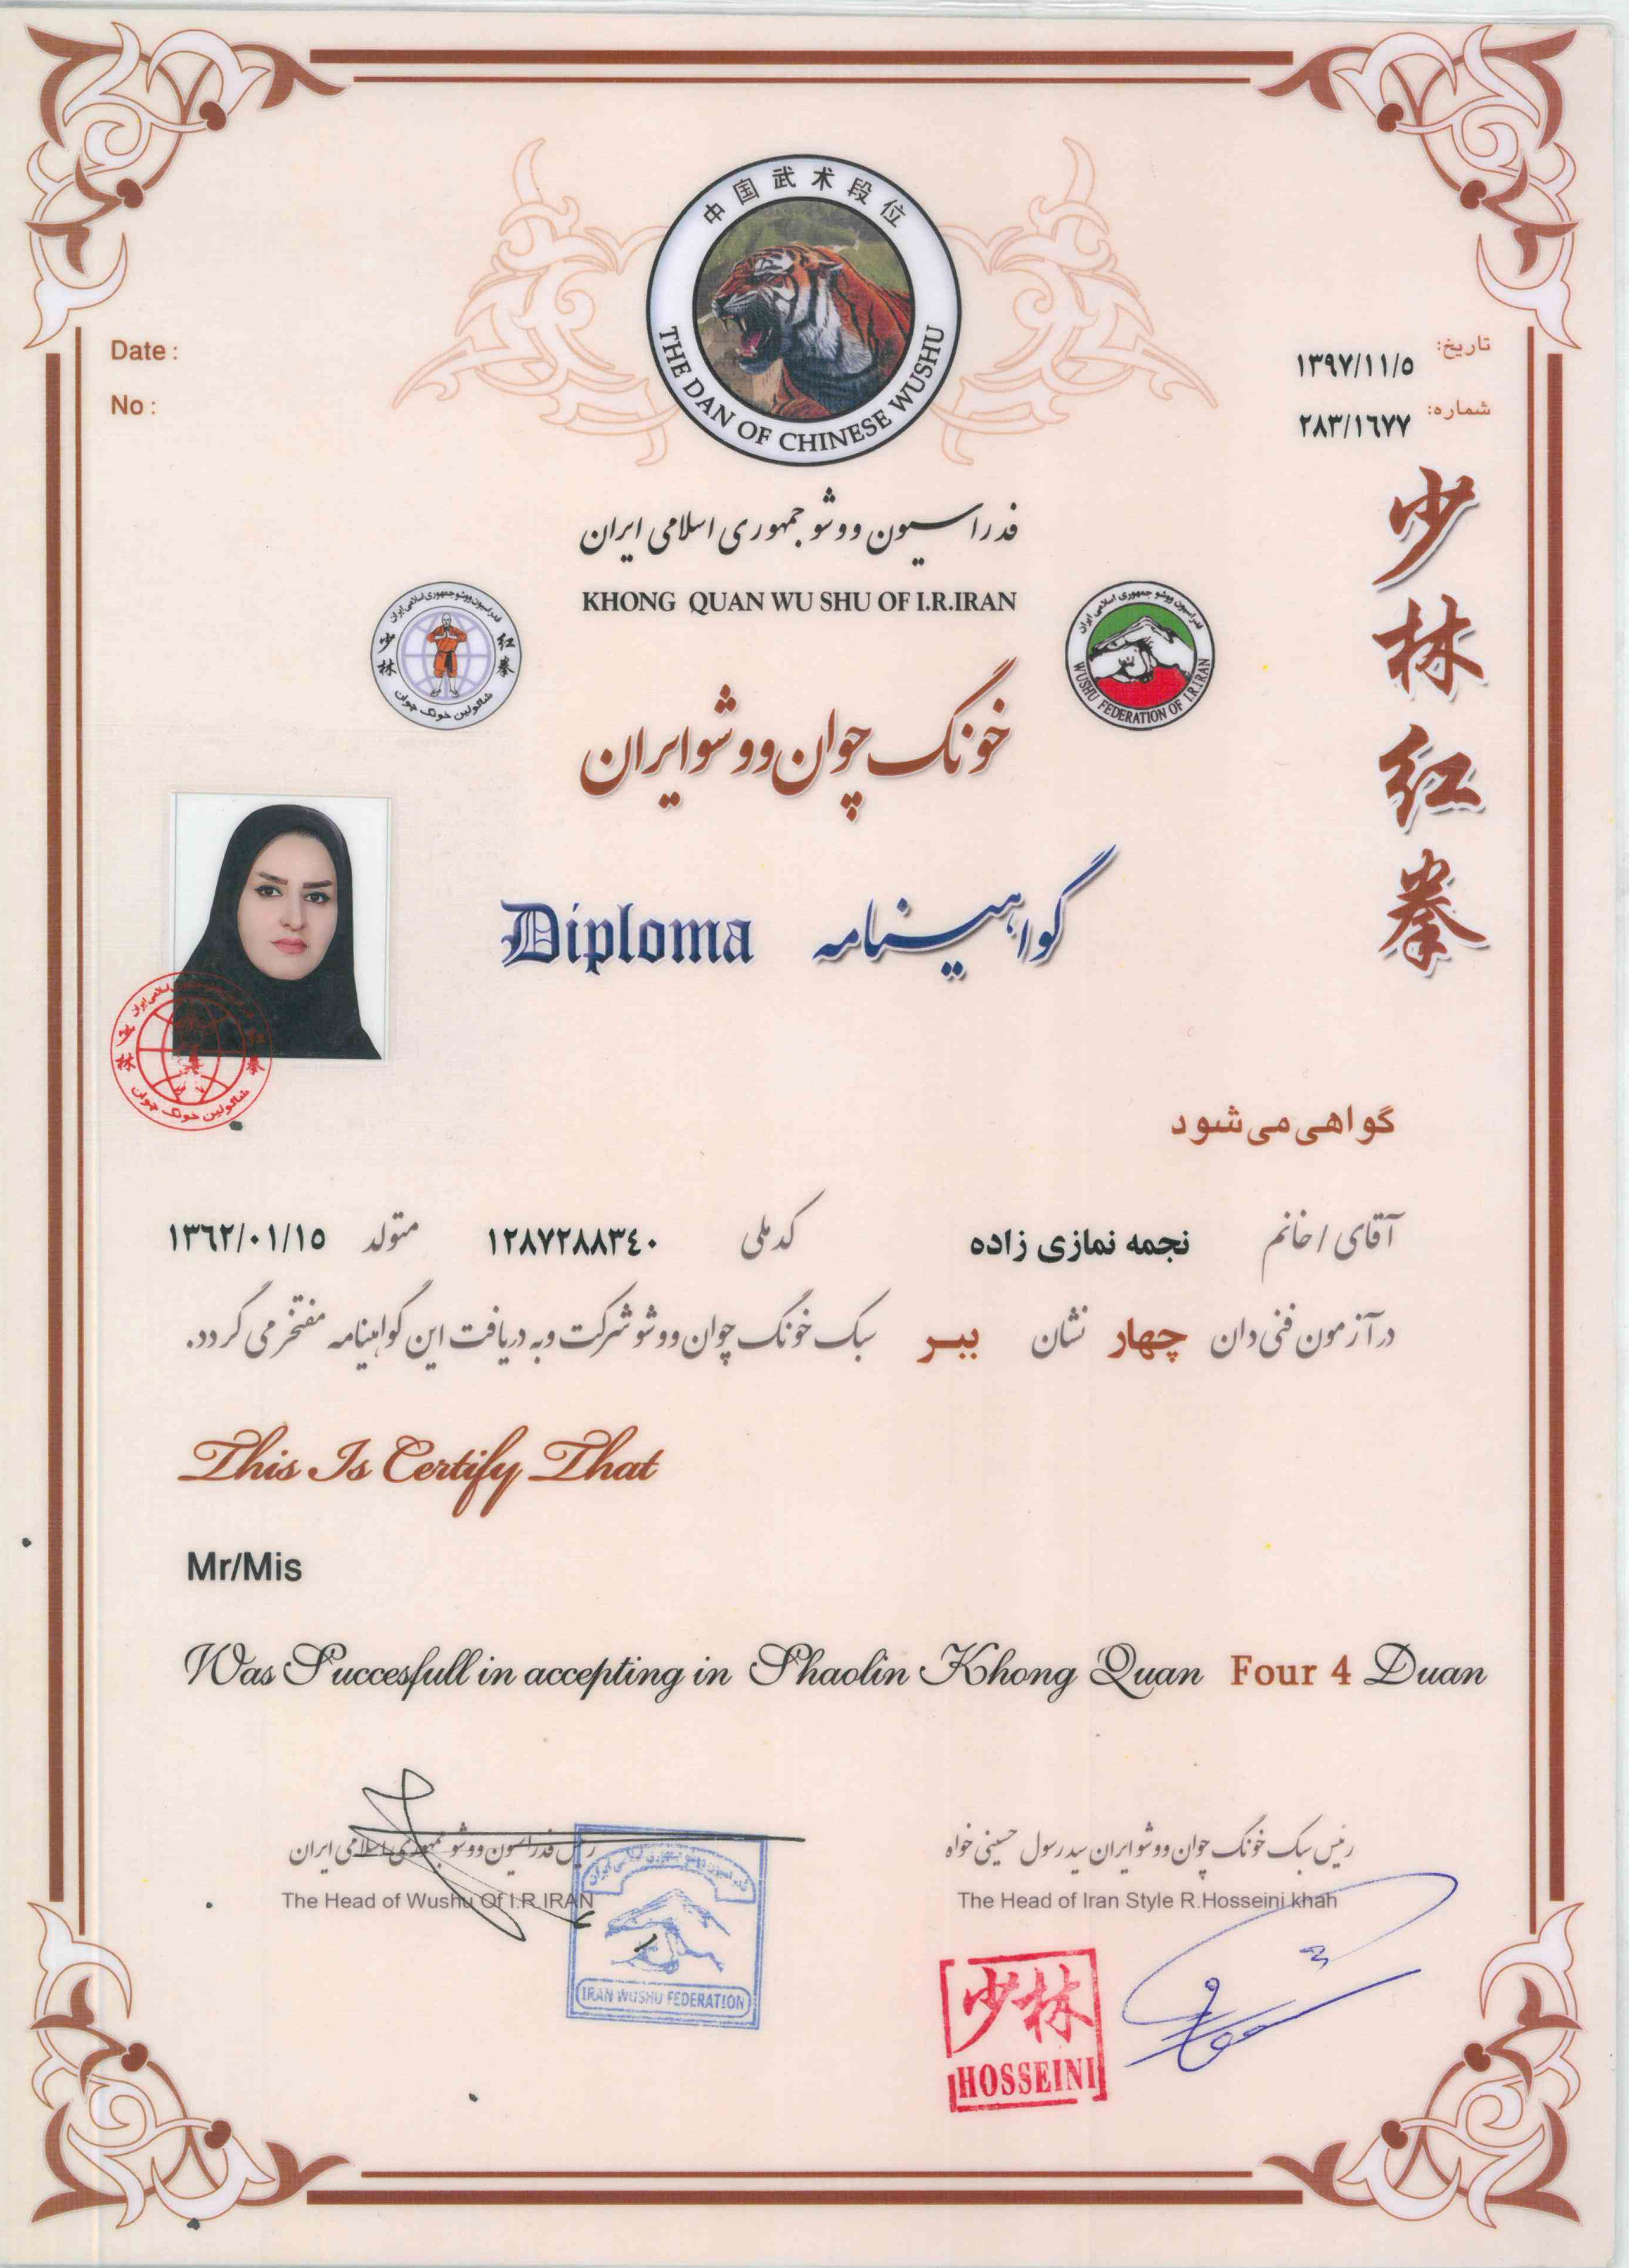 中国武术段位
THE DAN OF CHINESE WUSHU
Date :
No :
تاریخ: ۱۳۹۷/۱۱/۵
شماره: ۲۸۳/۱٦۷۷
فدراسیون ووشو جمهوری اسلامی ایران
KHONG QUAN WU SHU OF I.R.IRAN
فدراسیون ووشو جمهوری اسلامی ایران
少林 红拳
شائولین خونگ چوان
فدراسیون ووشو جمهوری اسلامی ایران
WUSHU FEDERATION OF I.R.IRAN
خونگ چوان ووشو ایران
少林红拳
Diploma گواهینامه
شائولین خونگ چوان
گواهی می شود
آقای / خانم نجمه نمازی زاده کد ملی ۱۲۸۷۲۸۸۳٤۰ متولد ۱۳٦۲/۰۱/۱۵
در آزمون فنی دان چهار نشان ببر سبک خونگ چوان ووشو شرکت و به دریافت این گواهینامه مفتخر می گردد.
This Is Certify That
Mr/Mis
Was Succesfull in accepting in Shaolin Khong Quan Four 4 Duan
رئیس سبک خونگ چوان ووشو ایران سید رسول حسینی خواه
The Head of Iran Style R.Hosseini khah
少林
HOSSEINI
رئیس فدراسیون ووشو جمهوری اسلامی ایران
The Head of Wushu Of I.R.IRAN
IRAN WUSHU FEDERATION